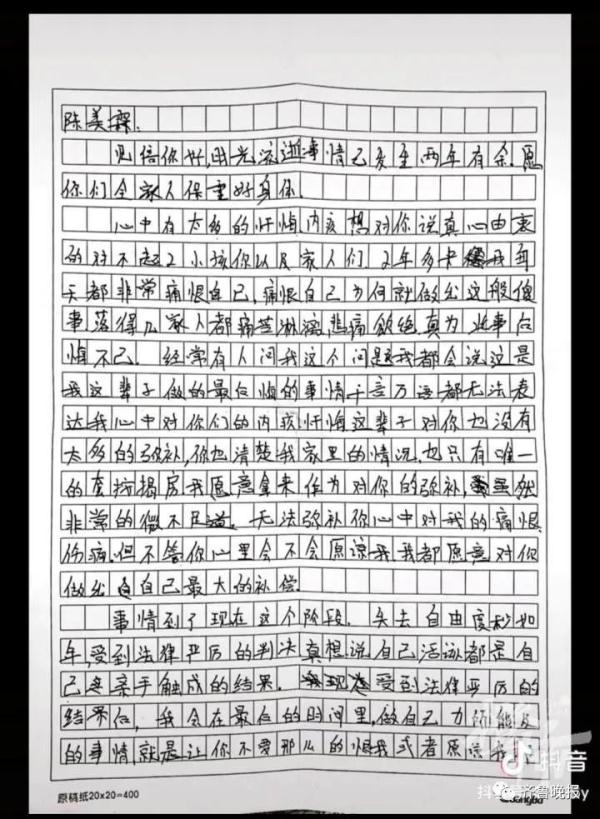 陈美霖.
见信你好,时光流逝事情已发至两年有余.愿
你们全家人保重好身体.
心中有太多的忏悔内疚想对你说真心由衷
的对不起2小孩你以及家人们.2年多来我每
天都非常痛恨自己,痛恨自己为何就做出这般傻
事落得几家人都痛苦淋漓,悲痛欲绝真为此事后
悔不已.经常有人问我这个问题我都会说这是
我这辈子做的最后悔的事情千言万语都无法表
达我心中对你们的内疚忏悔这辈子对你也没有
太多的弥补,你也清楚我家里的情况.也只有唯一
的套按揭房我愿意拿来作为对你的弥补,虽然
非常的微不足道.无法弥补你心中对我的痛恨
伤痛.但不管你心里会不会原谅我.我都愿意对你
做出自己最大的补偿.
事情到了现在这个阶段.失去自由度秒如
年,受到法律严厉的判决真想说自己活该都是自
己亲手触成的结果.我现在受到法律严厉的
结果后,我会在最后的时间里,做自己力所能及
的事情,就是让你不要那么的恨我或者原谅我
原稿纸20×20=400
Guangbo
抖音
齐鲁晚报